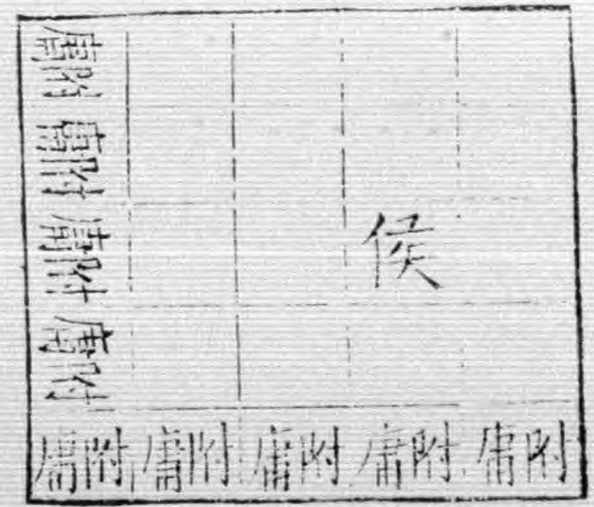 附庸
附庸
侯
附庸
附庸
附庸 附庸 附庸 附庸 附庸